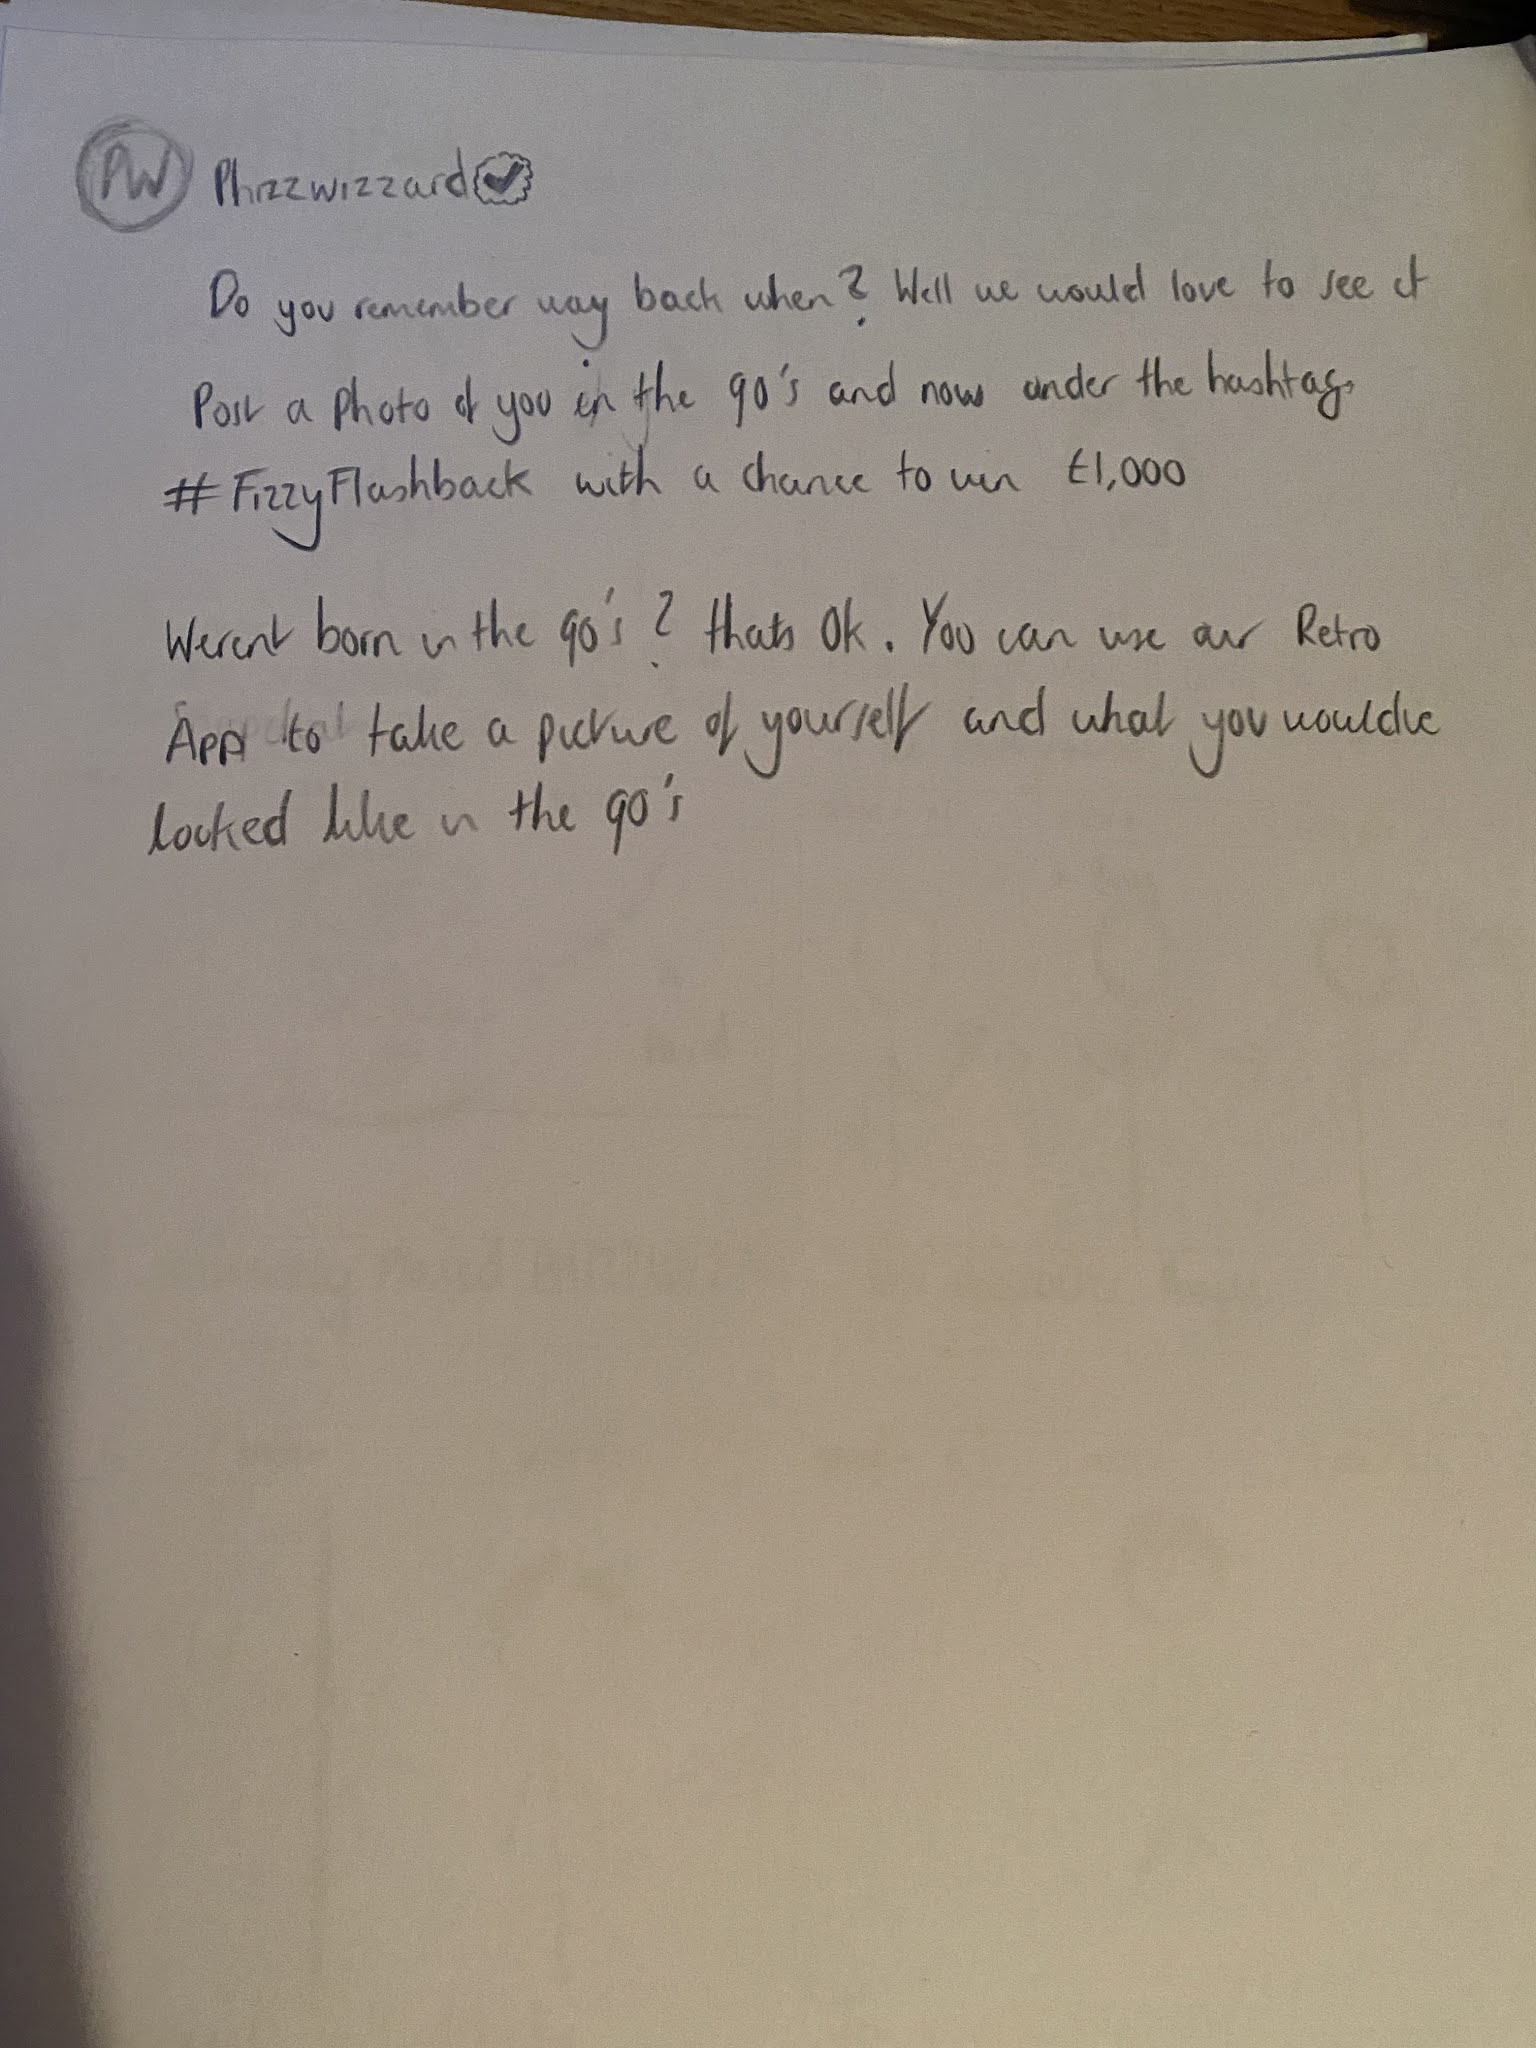 PW Phizzwizzard
Do you remember way back when? Well we would love to see it
Post a photo of you in the 90's and now under the hashtag
#FizzyFlashback with a chance to win £1,000
Werent born in the 90's? thats Ok. You can use our Retro
App to take a picture of yourself and what you would've
looked like in the 90's